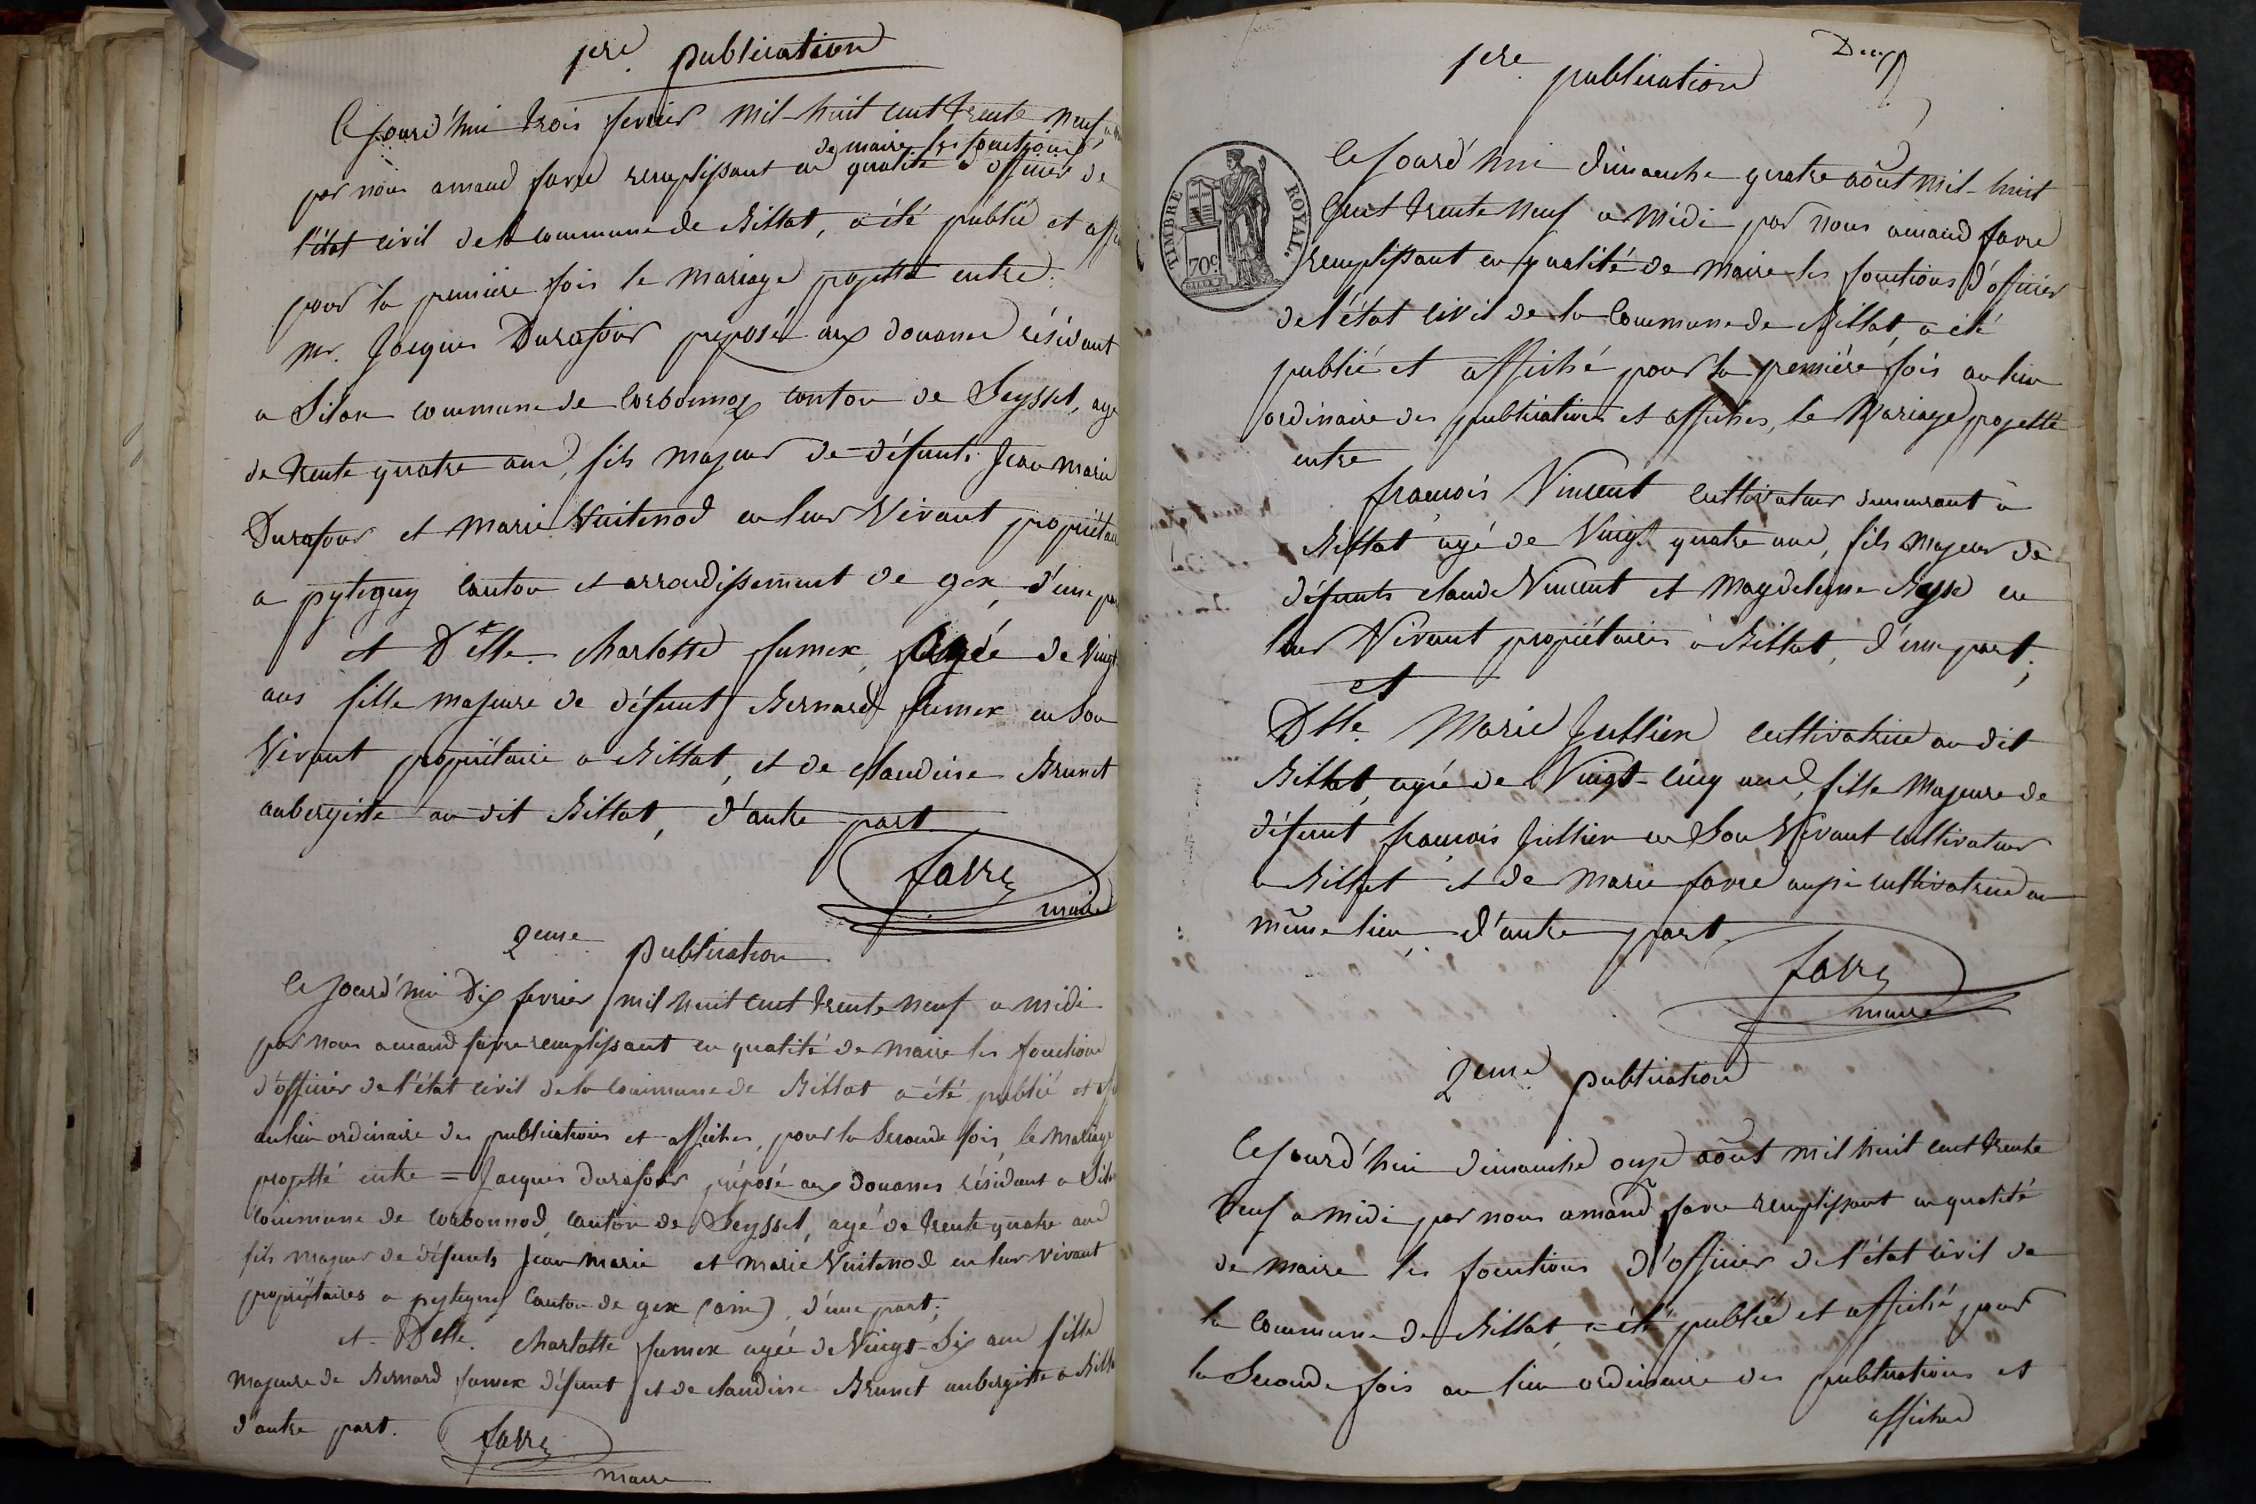 1ere publication
Cejourd'hui trois fevrier mil-huit cent trente neuf,
de maire les fonctions
par nous amand favre remplissant en qualité d'officier de
l'état civil de la commune de Billiat, a été publié et
pour la premiere fois le mariage projetté entre:
Mr. Jacques Durafour préposé aux douanes résidant
a Silan commune de Corbonnod canton de Seyssel, agé
de trente quatre ans, fils majeur de défunts Jean marie
Durafour et marie Vuitenod en leur Vivant propriétaires
a pyzieguy canton et arrondissement de gex, d'une part
et Delle. Charlotte fumex, agée de Vingt
ans fille majeure de défunt Bernard fumex en Son
Vivant propriétaire a Billiat, et de Claudine Brunet
aubergiste au dit Billiat, d'autre part
favre
maire
2eme publication
Cejourd'hui Dix fevrier mil huit cent trente neuf a midi
par nous amand favre remplissant en qualité de maire les fonctions
d'officier de l'état civil de la commune de Billiat a été publié et
au lieu ordinaire des publications et affiches, pour la Seconde fois, le mariage
projetté entre = Jacques durafour préposé aux douanes résidant a Silan
commune de corbonnod, canton de Seyssel, agé de trente quatre ans
fils majeur de défunts Jean marie et marie Vuitenod en leur vivant
propriétaires a canton de gex (ain), d'une part;
et Delle. Charlotte fumex agée de Vingt-Six ans fille
majeure de Bernard fumex défunt et de claudine Brunet aubergiste a Billiat
d'autre part.
favre
maire
Deux
1ere publication
TIMBRE ROYAL.
70c
Cejourd'hui dimanche quatre août mil-huit
Cent trente neuf a midi par nous amand favre
remplissant en qualité de maire les fonctions d'officier
de l'état civil de la Commune de Billiat, a été
publié et affiché pour la premiére fois au lieu
ordinaire des publications et affiches, le Mariage projetté
entre
françois Vincent cultivateur demeurant à
Billiat agé de Vingt quatre ans, fils majeur de
défunts claude Vincent et Magdeleine en
leur Vivant propriétaires à Billiat, d'une part;
et
Dlle. Marie Jullien cultivatrice au dit
Billiat, agée de Vingt-cinq ans, fille Majeure de
défunt françois Jullien en Son Vivant cultivateur
a Billiat et de marie favre aussi cultivatrice au
même lieu, d'autre part.
favre
maire
2eme publication
Cejourd'hui dimanche onze août mil huit cent trente
neuf a midi par nous amand favre remplissant en qualité
de maire les fonctions d'officier de l'état civil de
la commune de Billiat, a été publié et affiché pour
la Seconde fois au lieu ordinaire des publications et
affiches